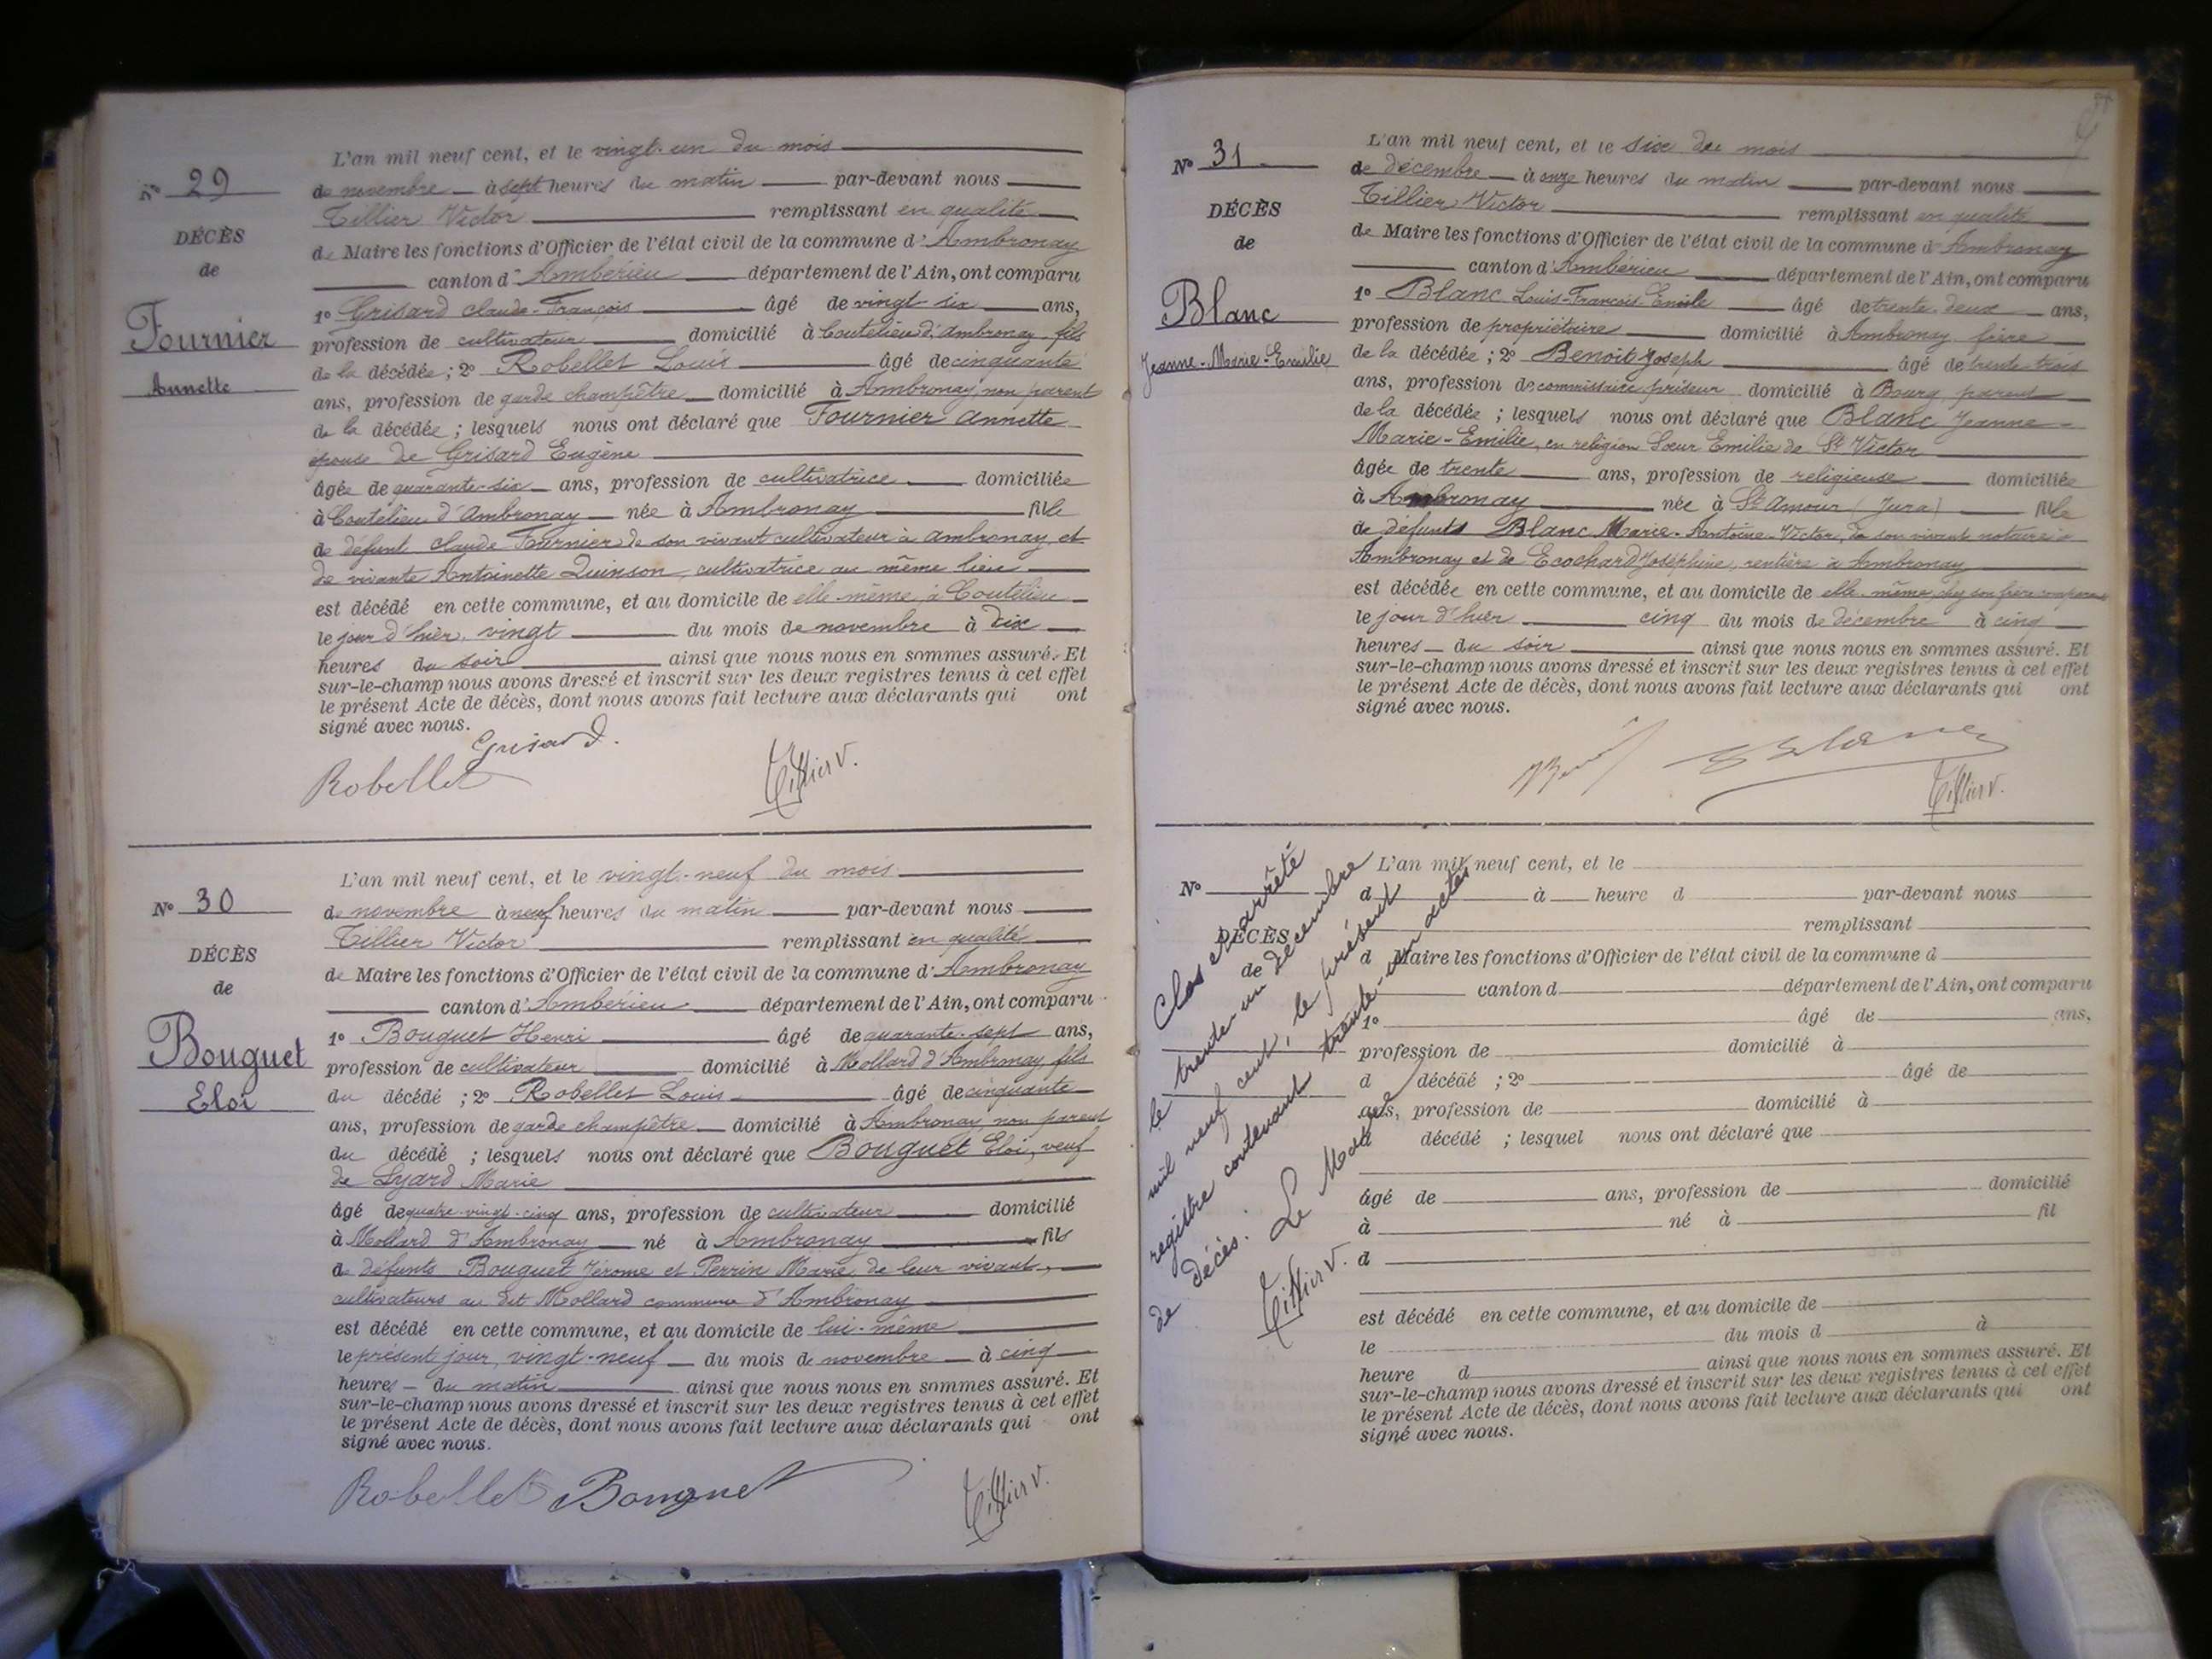 Nº 29
DÉCÈS
de
Fournier
Annette
L'an mil neuf cent, et le vingt-un du mois
de novembre à sept heures du matin par-devant nous
Tillier Victor remplissant en qualité
de Maire les fonctions d'Officier de l'état civil de la commune d'Ambronay
canton d'Ambérieu département de l'Ain, ont comparu
1º Grisard claude-François âgé de vingt-six ans,
profession de cultivateur domicilié à Coutelieu d'Ambronay fils
de la décédée ; 2º Robellet Louis âgé de cinquante
ans, profession de garde champêtre domicilié à Ambronay, non parent
de la décédée ; lesquels nous ont déclaré que Fournier Annette
épouse de Grisard Eugène
âgée de quarante-six ans, profession de cultivatrice domiciliée
à Coutelieu d'Ambronay née à Ambronay fille
de défunt claude Fournier de son vivant cultivateur à ambronay et
de vivante Antoinette Quinson, cultivatrice au même lieu
est décédé en cette commune, et au domicile de elle-même, à Coutelieu
le jour d'hier, vingt du mois de novembre à dix
heures du soir ainsi que nous nous en sommes assuré. Et
sur-le-champ nous avons dressé et inscrit sur les deux registres tenus à cet effet
le présent Acte de décès, dont nous avons fait lecture aux déclarants qui ont
signé avec nous.
Grisard.
Robellet Tillier V.
Nº 30
DÉCÈS
de
Bouguet
Eloi
L'an mil neuf cent, et le vingt-neuf du mois
de novembre à neuf heures du matin par-devant nous
Tillier Victor remplissant en qualité
de Maire les fonctions d'Officier de l'état civil de la commune d'Ambronay
canton d'Ambérieu département de l'Ain, ont comparu
1º Bouguet Henri âgé de quarante-sept ans,
profession de cultivateur domicilié à Mollard d'Ambronay, fils
du décédé ; 2º Robellet Louis âgé de cinquante
ans, profession de garde champêtre domicilié à Ambronay, non parent
du décédé ; lesquels nous ont déclaré que Bouguet Eloi, veuf
de Lyard Marie
âgé de quatre-vingt-cinq ans, profession de cultivateur domicilié
à Mollard d'Ambronay né à Ambronay fils
de défunts Bouguet Jérome et Perrin Marie de leur vivant,
cultivateurs au dit Mollard commune d'Ambronay
est décédé en cette commune, et au domicile de lui-même
le présent jour, vingt-neuf du mois de novembre à cinq
heures du matin ainsi que nous nous en sommes assuré. Et
sur-le-champ nous avons dressé et inscrit sur les deux registres tenus à cet effet
le présent Acte de décès, dont nous avons fait lecture aux déclarants qui ont
signé avec nous.
Robellet Bouguet Tillier V.
Nº 31
DÉCÈS
de
Blanc
Jeanne-Marie-Emilie
L'an mil neuf cent, et le six du mois
de décembre à onze heures du matin par-devant nous
Tillier Victor remplissant en qualité
de Maire les fonctions d'Officier de l'état civil de la commune d'Ambronay
canton d'Ambérieu département de l'Ain, ont comparu
1º Blanc Louis-François-Emile âgé de trente-deux ans,
profession de propriétaire domicilié à Ambronay frère
de la décédée ; 2º Benoit Joseph âgé de trente-trois
ans, profession de commissaire priseur domicilié à Bourg, parent
de la décédée ; lesquels nous ont déclaré que Blanc Jeanne-
Marie-Emilie, en religion Sœur Emilie de St Victor
âgée de trente ans, profession de religieuse domiciliée
à Ambronay née à St Amour (Jura) fille
de défunts Blanc Marie-Antoine-Victor, de son vivant notaire à
Ambronay et de Ecochard Joséphine, rentière à Ambronay
est décédée en cette commune, et au domicile de elle-même, chez son frère
le jour d'hier cinq du mois de décembre à cinq
heures du soir ainsi que nous nous en sommes assuré. Et
sur-le-champ nous avons dressé et inscrit sur les deux registres tenus à cet effet
le présent Acte de décès, dont nous avons fait lecture aux déclarants qui ont
signé avec nous.
E Blanc
Tillier V.
Nº
DÉCÈS
de
L'an mil neuf cent, et le
d à heure d par-devant nous
remplissant
d Maire les fonctions d'Officier de l'état civil de la commune d
canton d département de l'Ain, ont comparu
1º âgé de ans,
profession de domicilié à
d décédé ; 2º âgé de
ans, profession de domicilié à
d décédé ; lesquel nous ont déclaré que
âgé de ans, profession de domicilié
à né à fil
d
est décédé en cette commune, et au domicile de
le du mois d à
heure d ainsi que nous nous en sommes assuré. Et
sur-le-champ nous avons dressé et inscrit sur les deux registres tenus à cet effet
le présent Acte de décès, dont nous avons fait lecture aux déclarants qui ont
signé avec nous.
Clos et arrêté
le trente-un décembre
mil neuf cent, le présent
registre contenant trente-un actes
de décès. Le Maire
Tillier V.